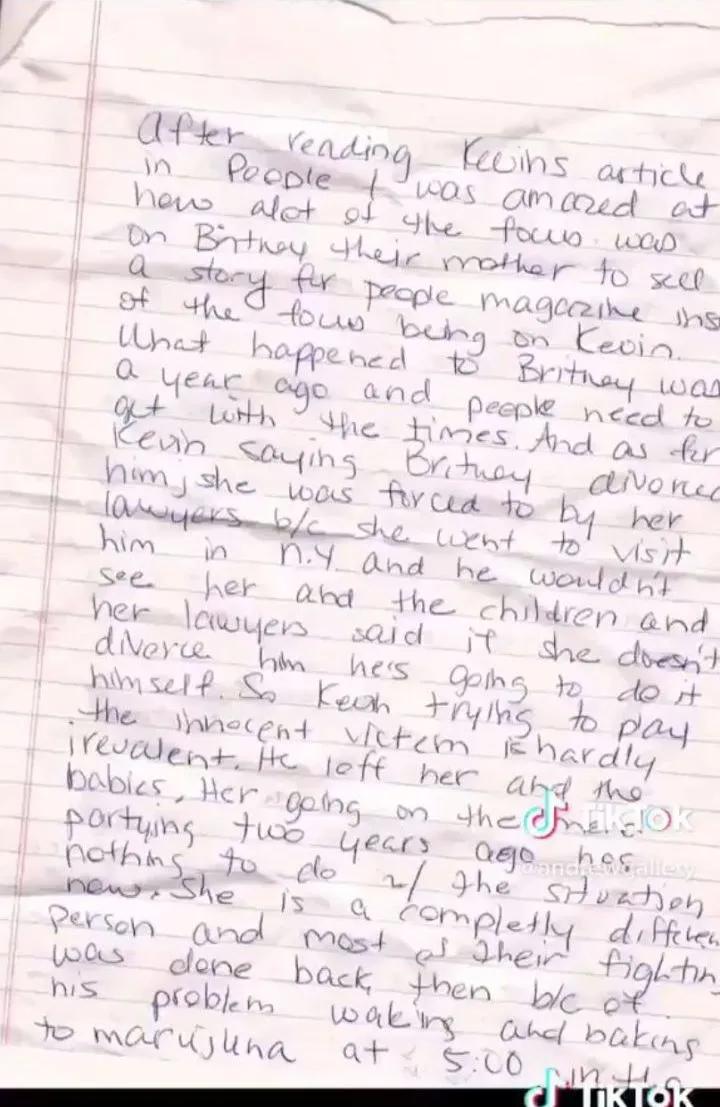 After reading Kevins article
in People I was amazed at
how alot of the focus was
on Britney their mother to sell
a story for people magazine ins
of the focus being on Kevin.
What happened to Britney was
a year ago and people need to
get with the times. And as for
Kevin saying Britney divorced
him, she was forced to by her
lawyers b/c she went to visit
him in N.Y. and he wouldn't
see her and the children and
her lawyers said if she doesn't
diverce him he's going to do it
himself. So Kevin trying to play
the innocent victem is hardly
irevalent. He left her and the
babies. Her going on the
partying two years ago has
nothing to do w/ the situation
now. She is a completly differen
person and most of their fightin
was done back then b/c of
his problem waking and baking
to marijuna at 5:00 in the
TikTok
@andrewgallery
TikTok